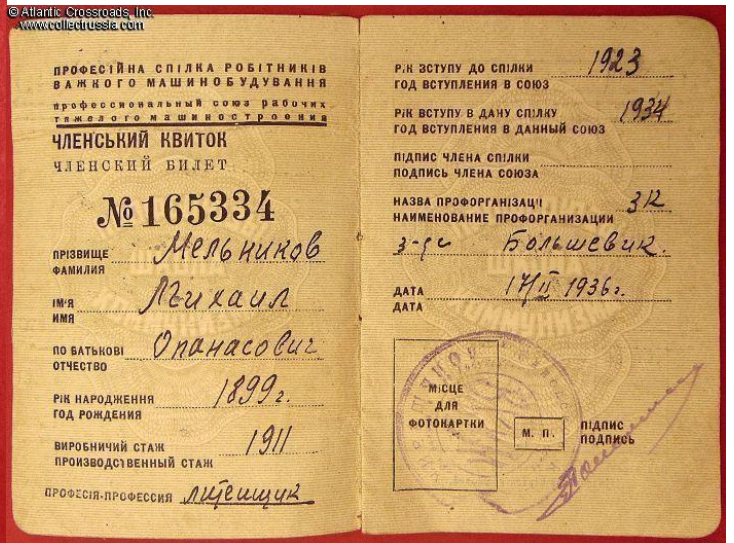 © Atlantic Crossroads, Inc.
www.collectrussia.com
ПРОФЕСІЙНА СПІЛКА РОБІТНИКІВ
ВАЖКОГО МАШИНОБУДУВАННЯ
профессиональный союз рабочих
тяжелого машиностроения
ЧЛЕНСЬКИЙ КВИТОК
ЧЛЕНСКИЙ БИЛЕТ
№165334
ПРІЗВИЩЕ Мельников
ФАМИЛИЯ
ІМ'Я Михаил
ИМЯ
ПО БАТЬКОВІ Опанасович
ОТЧЕСТВО
РІК НАРОДЖЕННЯ 1899 г.
ГОД РОЖДЕНИЯ
ВИРОБНИЧИЙ СТАЖ 1911
ПРОИЗВОДСТВЕННЫЙ СТАЖ
ПРОФЕСІЯ-ПРОФЕССИЯ литейщик
РІК ВСТУПУ ДО СПІЛКИ 1923
ГОД ВСТУПЛЕНИЯ В СОЮЗ
РІК ВСТУПУ В ДАНУ СПІЛКУ 1934
ГОД ВСТУПЛЕНИЯ В ДАННЫЙ СОЮЗ
ПІДПИС ЧЛЕНА СПІЛКИ
ПОДПИСЬ ЧЛЕНА СОЮЗА
НАЗВА ПРОФОРГАНІЗАЦІЇ ЗК
НАИМЕНОВАНИЕ ПРОФОРГАНИЗАЦИИ
Большевик.
ДАТА 17/II 1936 г.
ДАТА
МІСЦЕ
ДЛЯ
ФОТОКАРТКИ
М. П.
ПІДПИС
ПОДПИСЬ